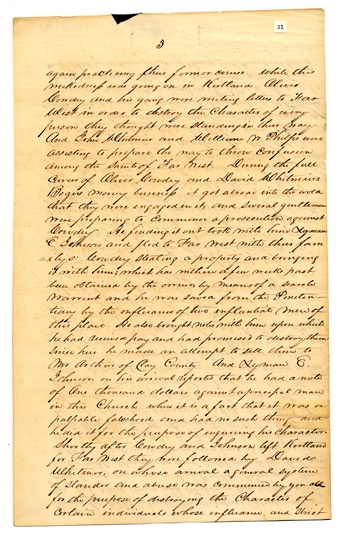 21
3
again practicing their former course. While this
wickedness was going on in Kirtland Oliver
Cowdry and his gang were writing letter to Far
West in order to destroy the Character of every
person they thought were standing in their way
And John Whitmer and William W Phelps were
assisting to prepare the way to throw confusion
among the saints of Far West. During the full
Career of Oliver Cowdry and David Whitmers
Bogus money business it got abroad into the world
that they were engaged in it and several gentlemen
were preparing to Commence a prosecution against
Cowdry he finding it out took with him Lyman
E Johnson and fled to Far West with their fam
ilys Cowdry stealing a property and bringing
it with him which has within a few weeks past
been obtained by the owner by means of a search
Warrant and he was saved from the Peneten
tiary by the influence of two influential men of
this place. He also brought notes with him upon which
he had received pay and had promised to destroy them
since here he made an attempt to sell them to
Mr Arthur of Clay County And Lyman E.
Johnson on his arrival reported that he had a note
of One thousand dollars against a principal man
in this Church when it is a fact that it was a
palpable falsehood and had no such thing and
he did it for the purpose of injuring his Character
Shortly after Cowdry and Johnson left Kirtland
for Far West they were followed by David
Whitmer on whose arrival a general system
of slander and abuse was commenced by you all
for the purpose of destroying the Character of
Certain individuals whose influence and strict